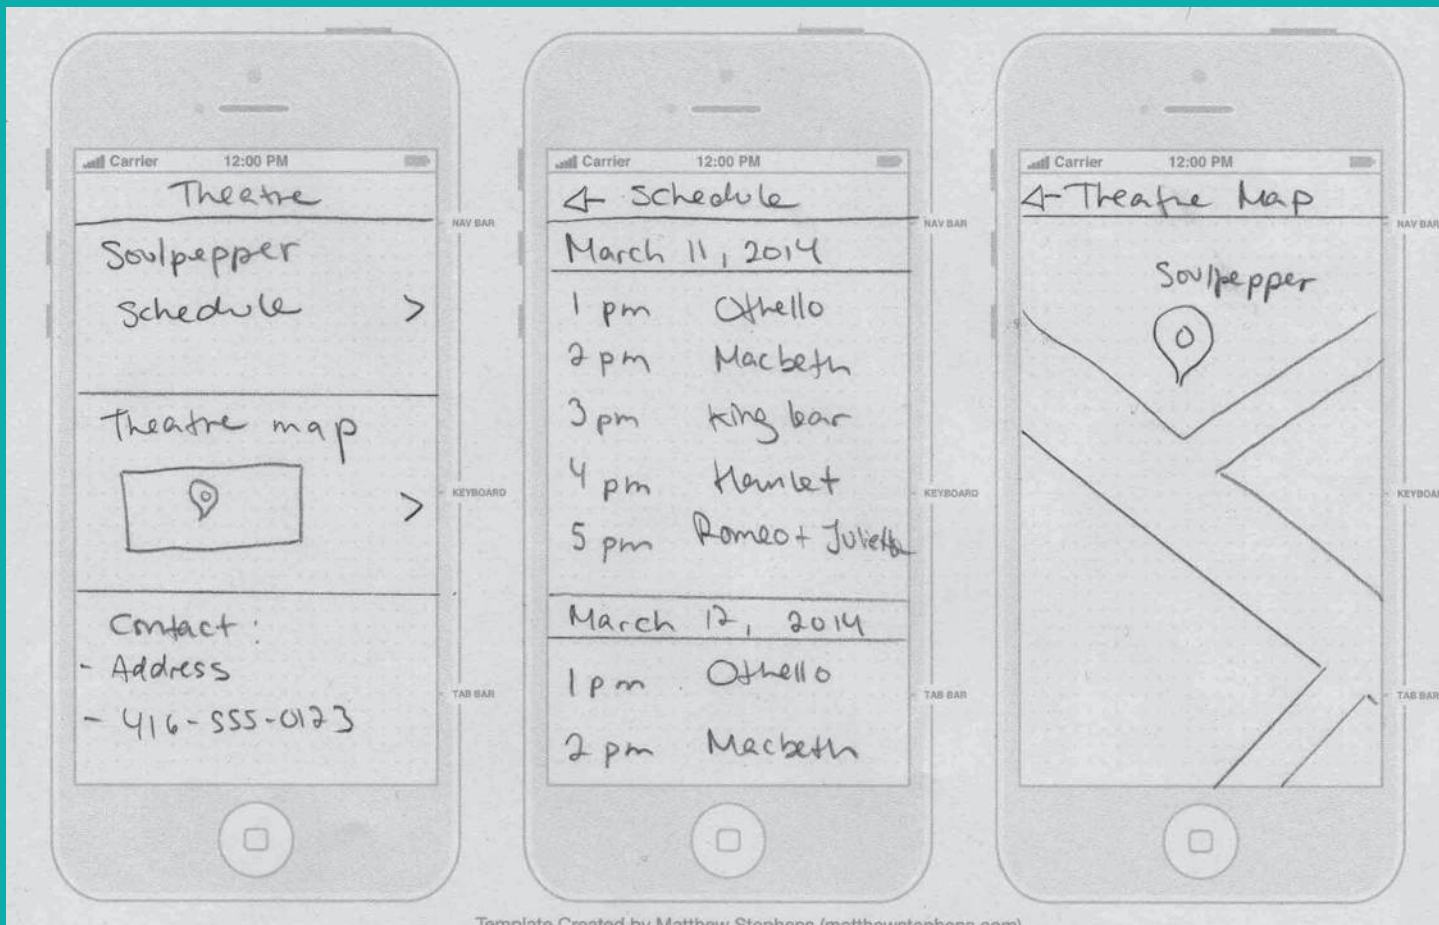 Carrier 12:00 PM
Theatre
NAV BAR
Soulpepper
Schedule >
Theatre map
>
KEYBOARD
Contact:
- Address
TAB BAR
- 416-555-0123
Carrier 12:00 PM
Schedule
NAV BAR
March 11, 2014
1 pm Othello
2 pm Macbeth
3 pm King Lear
4 pm Hamlet
KEYBOARD
5 pm Romeo + Juliette
March 12, 2014
1 pm Othello
TAB BAR
2 pm Macbeth
Carrier 12:00 PM
Theatre Map
NAV BAR
Soulpepper
KEYBOARD
TAB BAR
Template Created by Matthew Stephens (matthewstephens.com)